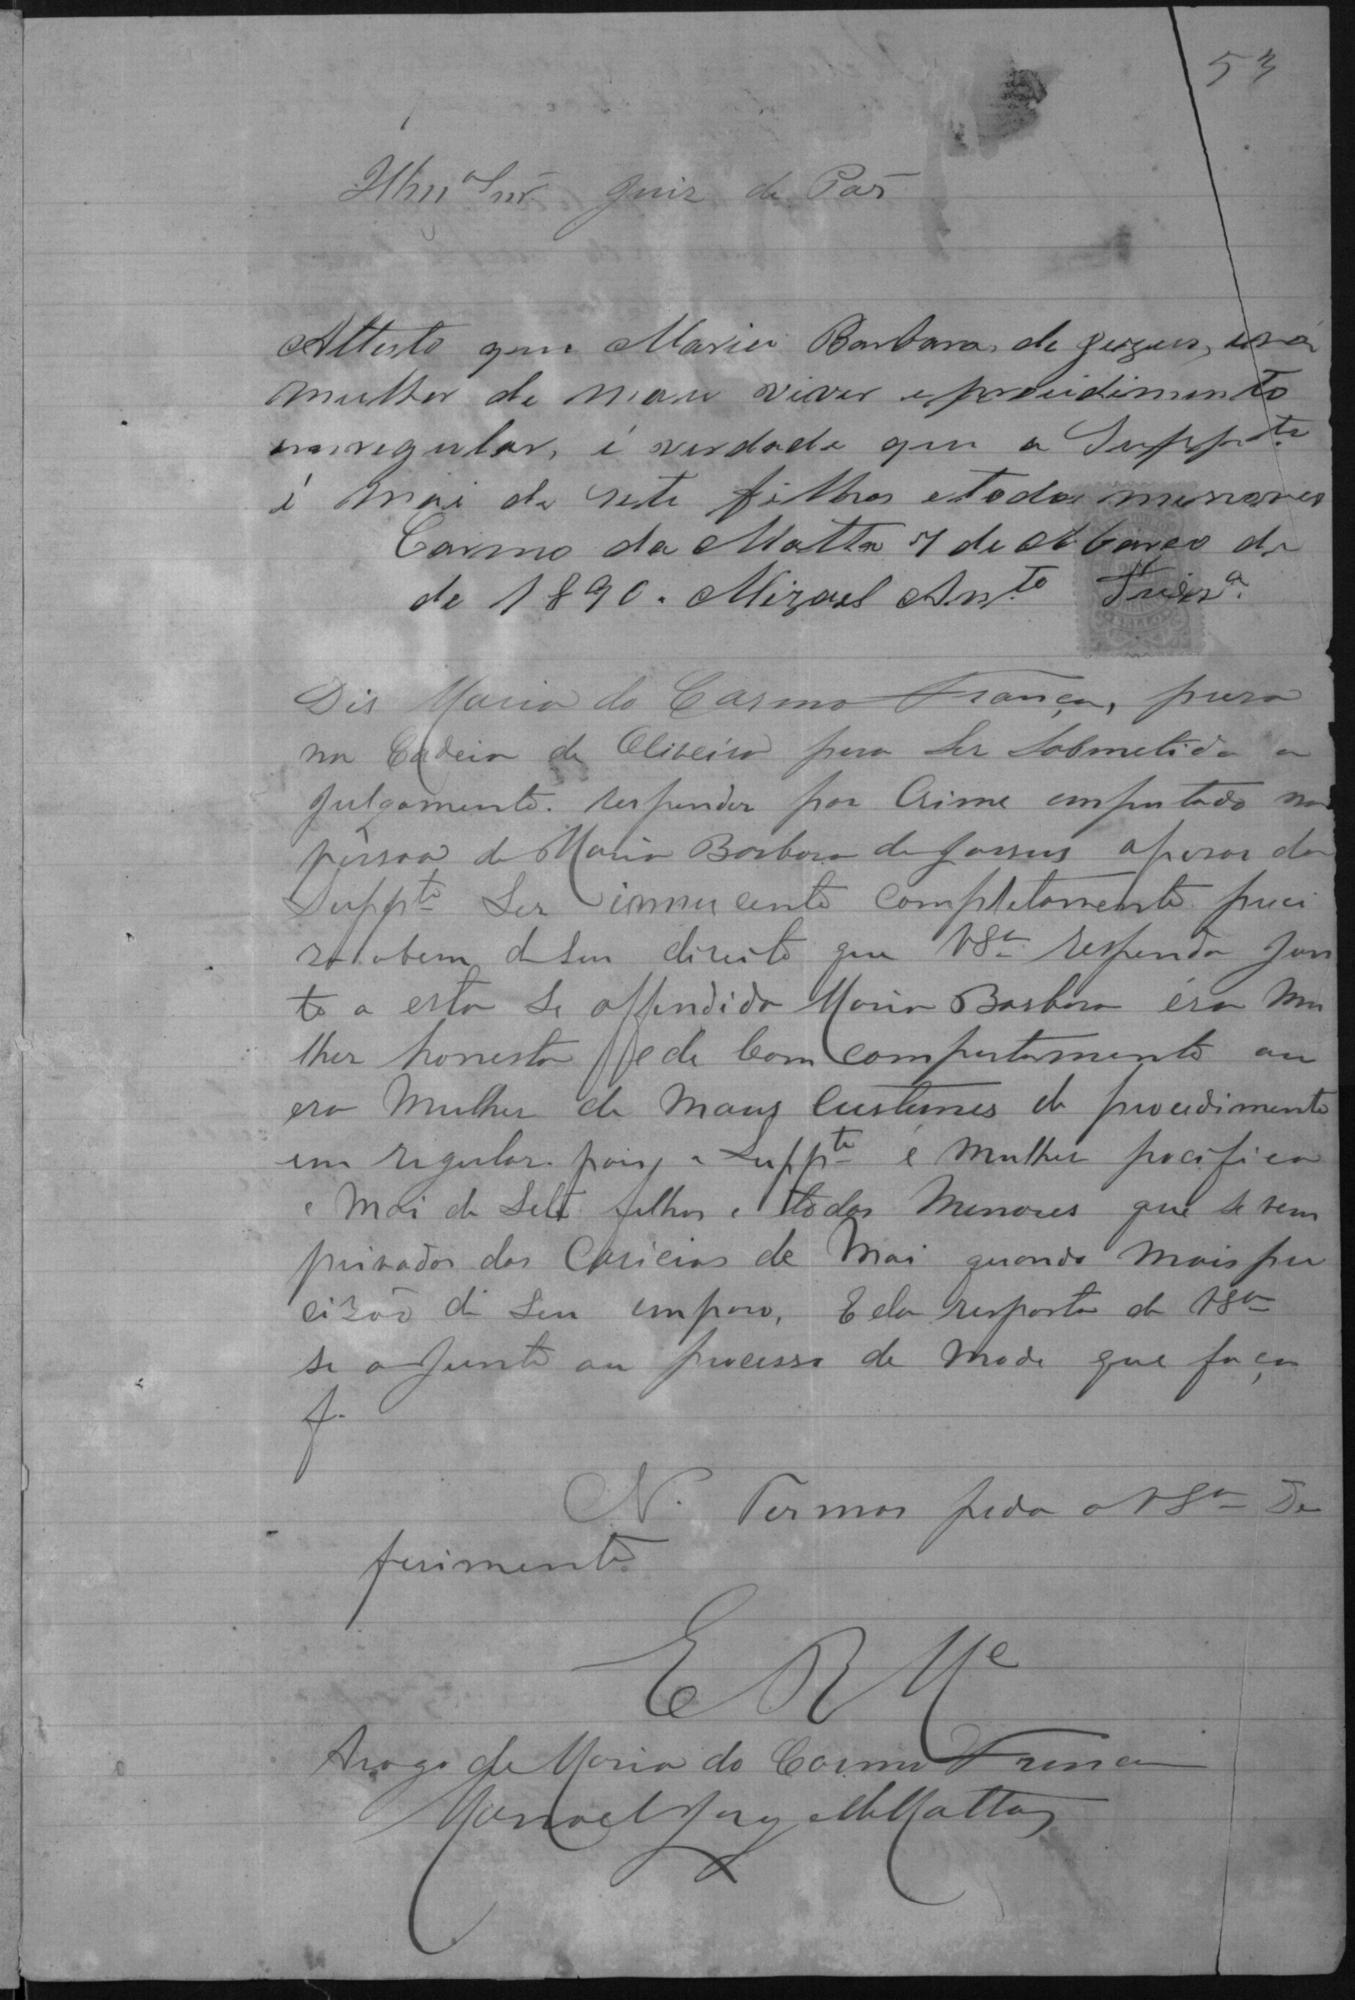 53
Illmº Snr. Juiz de Pas
Attesto que Maria Barbara de Jezus, éra
mulher de mau viver e procidimento
enrregular, é verdade que a Supp.te
é mai de sete filhos e todos menores
Carmo da Matta 7 de Março de
de 1890. Mizael Ant.to
Dis Maria do Carmo França, preza
na Cadeia de Oliveira para Ser Sobmetida a
Julgamento. responder por Crime emputado na
pêssoa de Maria Barbara de Jasus apezar da
Supp.te Ser innucente completamente preci
za abem dseu direito que VSª responda Jun
to a esta Se offendida Maria Barbara éra Mu
lher honesta e de bom comportamento au
era Mulher de Maus Custumes de procedimento
em regular. pois a Supp.te é Mulher pacifica
e Mai de Sete filhos e todos Menores que se vem
privados das Caricias de Mai quando mais pre
cizão di Seu emparo, E da resposta de VSª
se ajunte au processo de Mode que faça
f.
N. Termos pede a VSª De
ferimento
E R Mce
Arogo de Maria do Carmo Franca
Manoel Jose Mattos